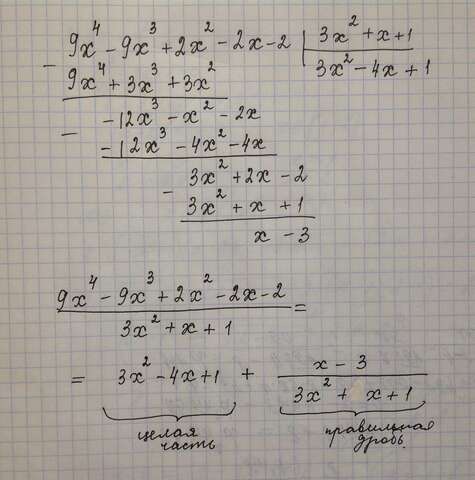 - 9x⁴ - 9x³ + 2x² - 2x - 2 | 3x² + x + 1
9x⁴ + 3x³ + 3x² | 3x² - 4x + 1
- -12x³ - x² - 2x
-12x³ - 4x² - 4x
- 3x² + 2x - 2
3x² + x + 1
x - 3
9x⁴ - 9x³ + 2x² - 2x - 2 =
3x² + x + 1
= 3x² - 4x + 1 + x - 3
3x² + x + 1
целая правильная
часть дробь.